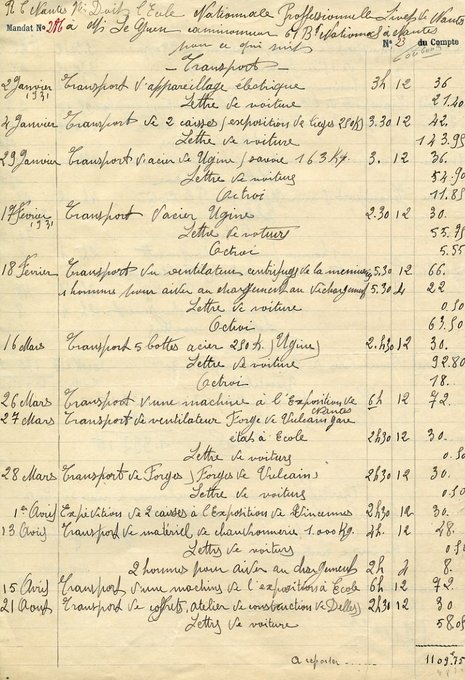 Nantes Doit l'Ecole Nationale Professionnelle Livet de Nantes
Mandat No 286 à Mr Le Guen camionneur Bd National à Nantes No 23 du Compte
pour ce qui suit
Transport
2 Janvier 1931 Transport d'appareillage électrique 3h 12 36
Lettre de voiture 21.40
4 Janvier Transport de 2 caisses (exposition de lièges 250K) 3.30 12 42.
Lettre de voiture 143.95
29 Janvier Transport d'acier de Ugine Savoie 163 Kg. 3. 12 36.
Lettre de voiture 54.90
Octroi 11.85
17 Février 1931 Transport d'acier Ugine 2.30 12 30.
Lettre de voiture 55.95
Octroi 5.55
18 Février Transport du ventilateur centrifuge de la menuis 5.30 12 66.
1 homme pour aider au chargement au déchargement 5.30 4 22
Lettre de voiture 0.50
Octroi 63.50
16 Mars Transport 5 bottes acier 250 K. (Ugine) 2.h30 12 30.
Lettre de voiture 92.80
Octroi 18.
26 Mars Transport d'une machine à l'Exposition de Nantes 6h 12 72.
27 Mars Transport de ventilateur Forge de Vulcain gare
état à Ecole 2h30 12 30.
Lettre de voiture 0.50
28 Mars Transport de Forges (Forges de Vulcain) 2h30 12 30.
Lettre de voiture 0.50
1er Avril Expédition de 2 caisses à l'Exposition de Vincennes 2h30 12 30.
13 Avril Transport de matériel de chaudronnerie 1.000 Kg. 4h. 12 48.
Lettre de voiture 0.50
2 hommes pour aider au chargement 2h 4 8.
15 Avril Transport d'une machine de l'exposition à Ecole 6h 12 72.
21 Aout Transport de coffrets, atelier de construction de Delle 2h30 12 30
Lettre de voiture 58.05
A reporter ------ 1109.75